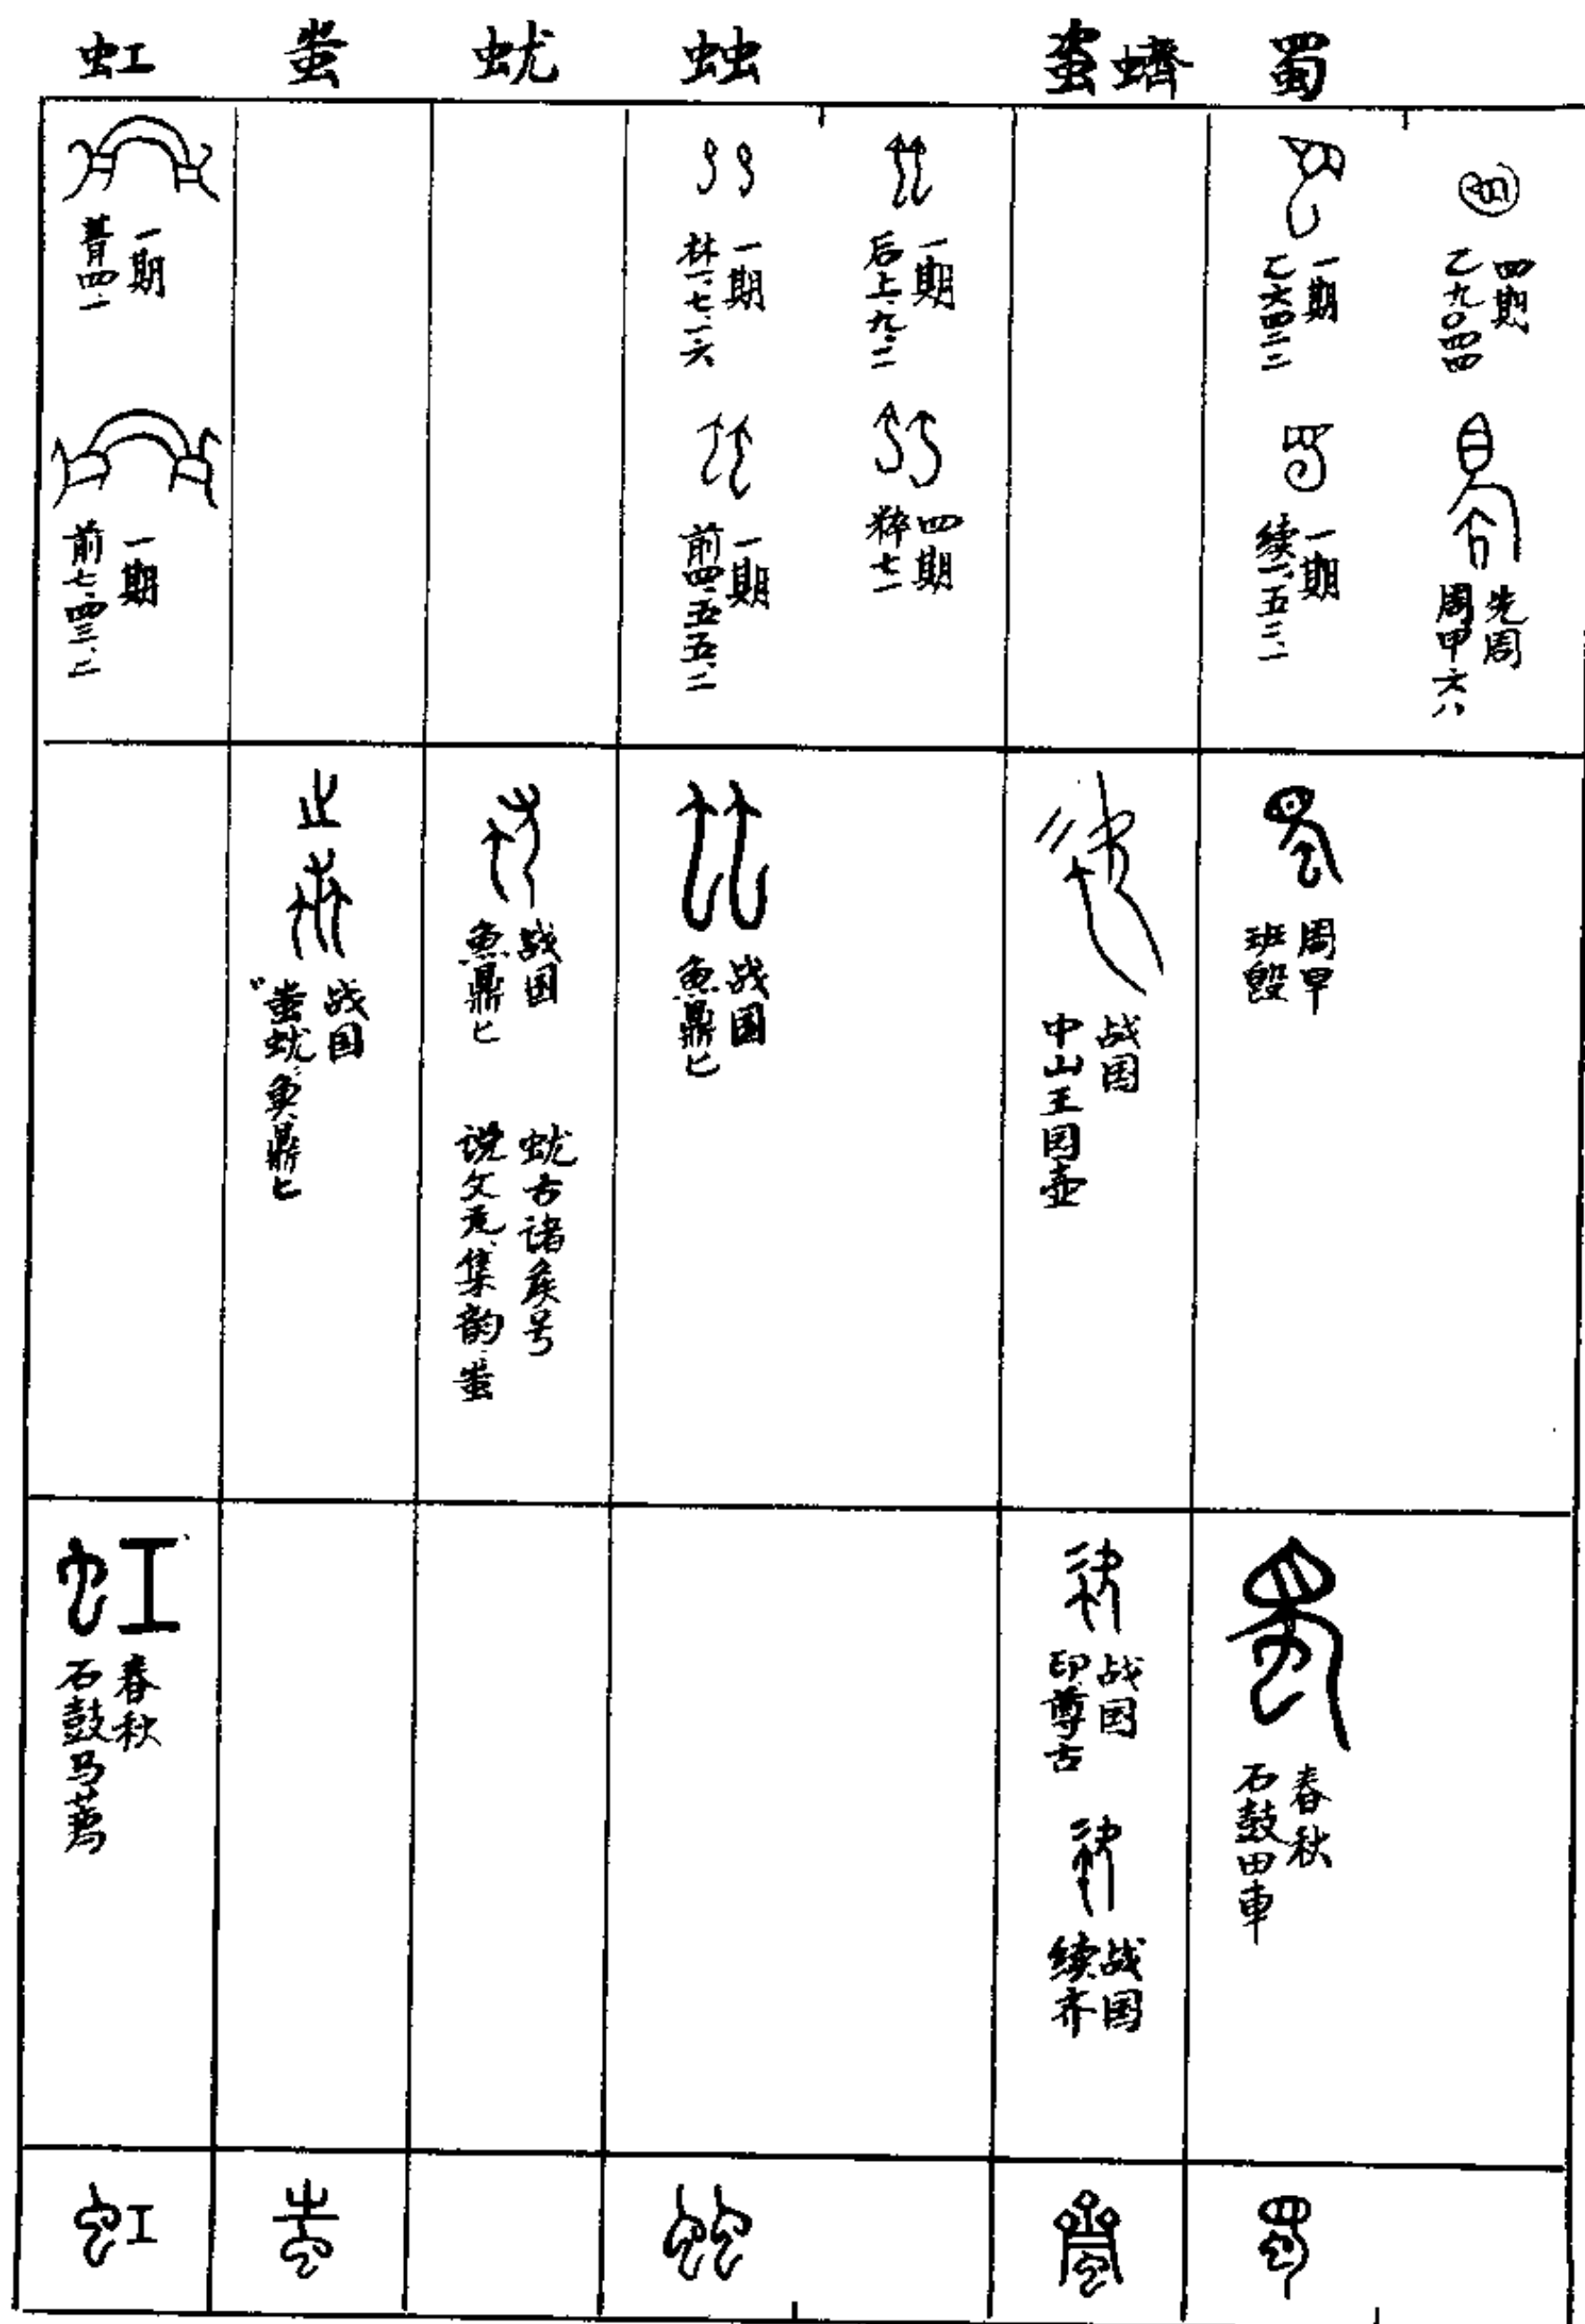 虹 蚩 蚘 䖵 蠐 蜀
一期
菁四·一
一期
前七·四三·二
一期
林一·七·一六
一期
前四·五五·二
一期
后上·九·二
四期
粹七一
一期
乙六四二二
一期
续一·五二·一
四期
乙九〇四四
先周
周甲六八
战国
"蚩蚘"魚鼎匕
战国
魚鼎匕
蚘古诸侯号
说文无集韵蚩
战国
魚鼎匕
战国
中山王圆壶
周早
班𣪘
春秋
石鼓马荐
战国
印尊古
战国
续齐
春秋
石鼓田車
虹 蚩 䖵 蜀